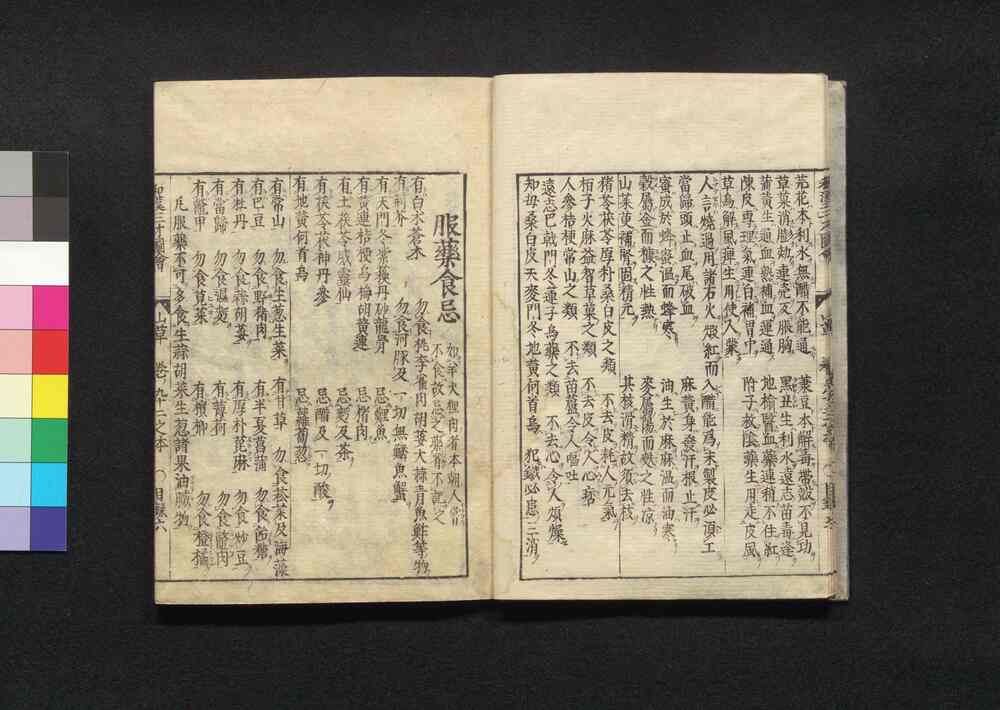 芫花本利水無醋不能通
菉豆本解毒帶殼不見功
草菓消膨効連壳反脹胸
黑丑生利水遠志苗毒逢
蒲黄生通血熟補血運通
地榆醫血藥連稍不住紅
陳皮專理氣連白補胃中
附子救陰藥生用走皮風
草烏解風痺生用使人蒙
人言燒過用諸石火煅紅而
入醋能爲末製度必須工
當歸頭止血尾破血
麻黄身發汗根止汗
蜜成於蜂蜜温而蜂寒
油生於麻麻温而油寒
穀屬金而糠之性熱
麥屬陽而麩之性凉
山茱萸補腎固精元
其核滑精故須去核
猪苓茯苓厚朴桑白皮之類
不去皮耗人元氣
梔子火麻益智草菓之類
不去皮令人心痞
人參桔梗常山之類
不去苗蘆令人嘔吐
遠志巴戟門冬蓮子烏藥之類
不去心令人煩燥
知母桑白皮天麥門冬地黄何首烏
犯鐵必患三消
服藥食忌
如羊犬狸肉者本朝人常
不食故忌之藥皆不記之
有白朮蒼朮
勿食桃李雀肉胡荽大蒜青魚鮓等物
有荆芥
勿食河豚及一切無鱗魚蟹
有天門冬紫蘇丹砂龍骨
忌鯉魚
有黄連桔梗烏梅胡黄連
忌猪肉
有土茯苓威靈仙
忌麪及茶
有茯苓茯神丹參
忌醋及一切酸
有地黄何首烏
忌蘿蔔葱
有常山
勿食生葱生菜
有甘草
勿食菘菜及海藻
有巴豆
勿食野猪肉
有半夏菖蒲
勿食飴糖
有牡丹
勿食蒜胡荽
有厚朴蓖麻
勿食炒豆
有當歸
勿食濕麪
有薄荷
勿食鼈肉
有鼈甲
勿食莧菜
有檳榔
勿食橙橘
凡服藥不可多食生蒜胡荽生葱諸果油膩物
和漢三才圖會
山草
卷ノ九十二之本
目録六